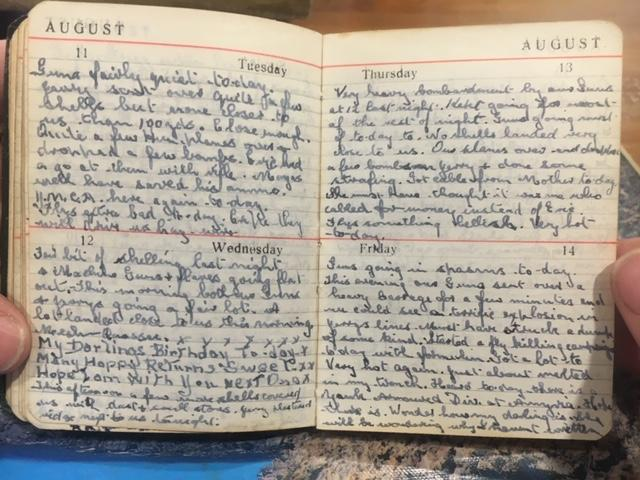 AUGUST
11
Tuesday
Guns fairly quiet to-day.
Jerry sent over quite a few
shells but none closer to
us than 100 yds. Close enough.
Quite a few Hun planes over &
dropped a few bombs. Eric had
a go at them with rifle.
well have saved his ammo.
Y.M.C.A. here again to-day.
Flys extra bad to-day. Expect they
will drive us
12
Wednesday
Fair bit of shelling last night
& Machine Guns & flares going flat
out. This morning both our Guns
& jerrys going a fair lot. A
lot landed close to us this morning
x x x x x x
My Darlings Birthday to-day. x
Many Happy Returns Sweet. xx
Hope I am With You Next One x
This afternoon a few more shells covered
us with dust & small stones. Jerry
next to us to-night.
AUGUST
Thursday
13
Very heavy bombardment by our Guns
at 12 last night. Kept going for most
of the rest of night. Guns going most
of to-day to. No shells landed very
close to us. Our planes over and
a few bombs on jerry & done some
strafing. Got cable from Mother to-day
She must have thought it was me who
called for money instead of Eric.
Flys something hellish. Very hot
to-day.
Friday
14
Guns going in spasms to-day.
This evening our Guns sent over a
heavy barrage for a few minutes and
we could see a terrific explosion in
jerrys lines. Must have struck a dump
of some kind. Started a fly killing campaign
to-day with formulin. Got a lot to
Very hot again. Just about melted
in my trench. Heard to-day there is a
Yank Armoured Div. at
there is. Wonder how my darling is. She
will be wondering why I havent written